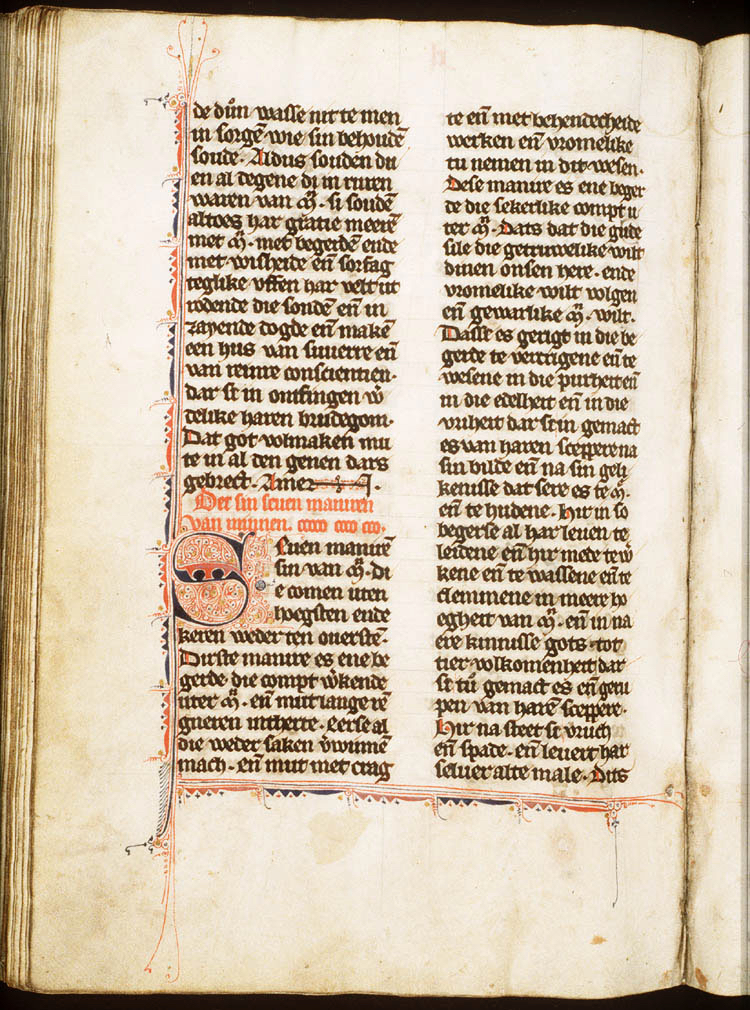 de dūn wasse nit te men
in sorgē wie sin behoudē
soude. Aldus souden du
en al degene di in ruren
waren van m̄. si soudē
altoes har gratie meerē
met m̄. met begerdēn ende
met wisheide eñ sorfag
teglike vffen har velt ut
rodende die sondē eñ in
zayende dogde eñ makē
een hus van suuerre eñ
van reinre conscientien.
dar si in ontfingen w̄
delike haren brudegom.
Dat got volmaken mu
te in al den genen dars
gebrect. Amen.
Det sin seuen maniren
van minnen.
Seuen manirē
sin van m̄. di
e comen uten
hoegsten ende
keren weder ten ouerstē.
Dirste manire es ene be
gerde die compt w̄kende
uter m̄. eñ mut lange rē
gneren int herte. eerse al
die weder saken v̄winnē
mach. eñ mut met crag
te eñ met behendecheide
werken eñ vromelike
tu nemen in dit wesen.
Dese manire es ene beger
de die sekerlike compt u
ter m̄. Dats dat die gude
sile die getruwelike wilt
dinen onsen here. ende
vromelike wilt volgen
eñ gewarlike m̄. wilt.
Dasse es gerigt in die be
gerde te vercrigene eñ te
wesene in die purheit eñ
in die edelheit eñ in die
vriheit dar si in gemact
es van haren sceppere na
sin bilde eñ na sin geli
kenisse dat sere es te m̄.
eñ te hudene. Hir in so
begerse al har leuen te
leidene eñ hir mede te w̄
kene eñ te wassene eñ te
clemmene in meere ho
egheit van m̄. eñ in na
ere kinnisse gots. tot
tier volkomenheit dar
si tū gemact es eñ geru
pen van harē sceppere.
Hir na steet si vruch
eñ spade. eñ leuert har
seluer alte male. Dits